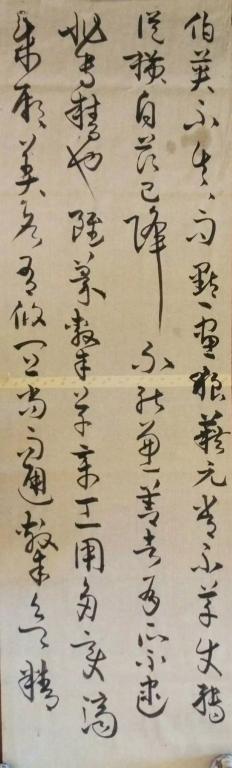 伯英不真而點畫狼藉元常不草使轉
從横自茲已降不能兼善者有所不逮
非專精也雖篆隸草章工用多變濟
成厥美各有攸宜尚而通隸欲精